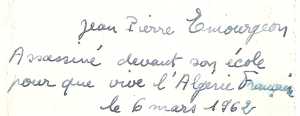 Jean Pierre Emourgeon
Assassiné devant son école
pour que vive l'Algérie Française
le 6 mars 1962